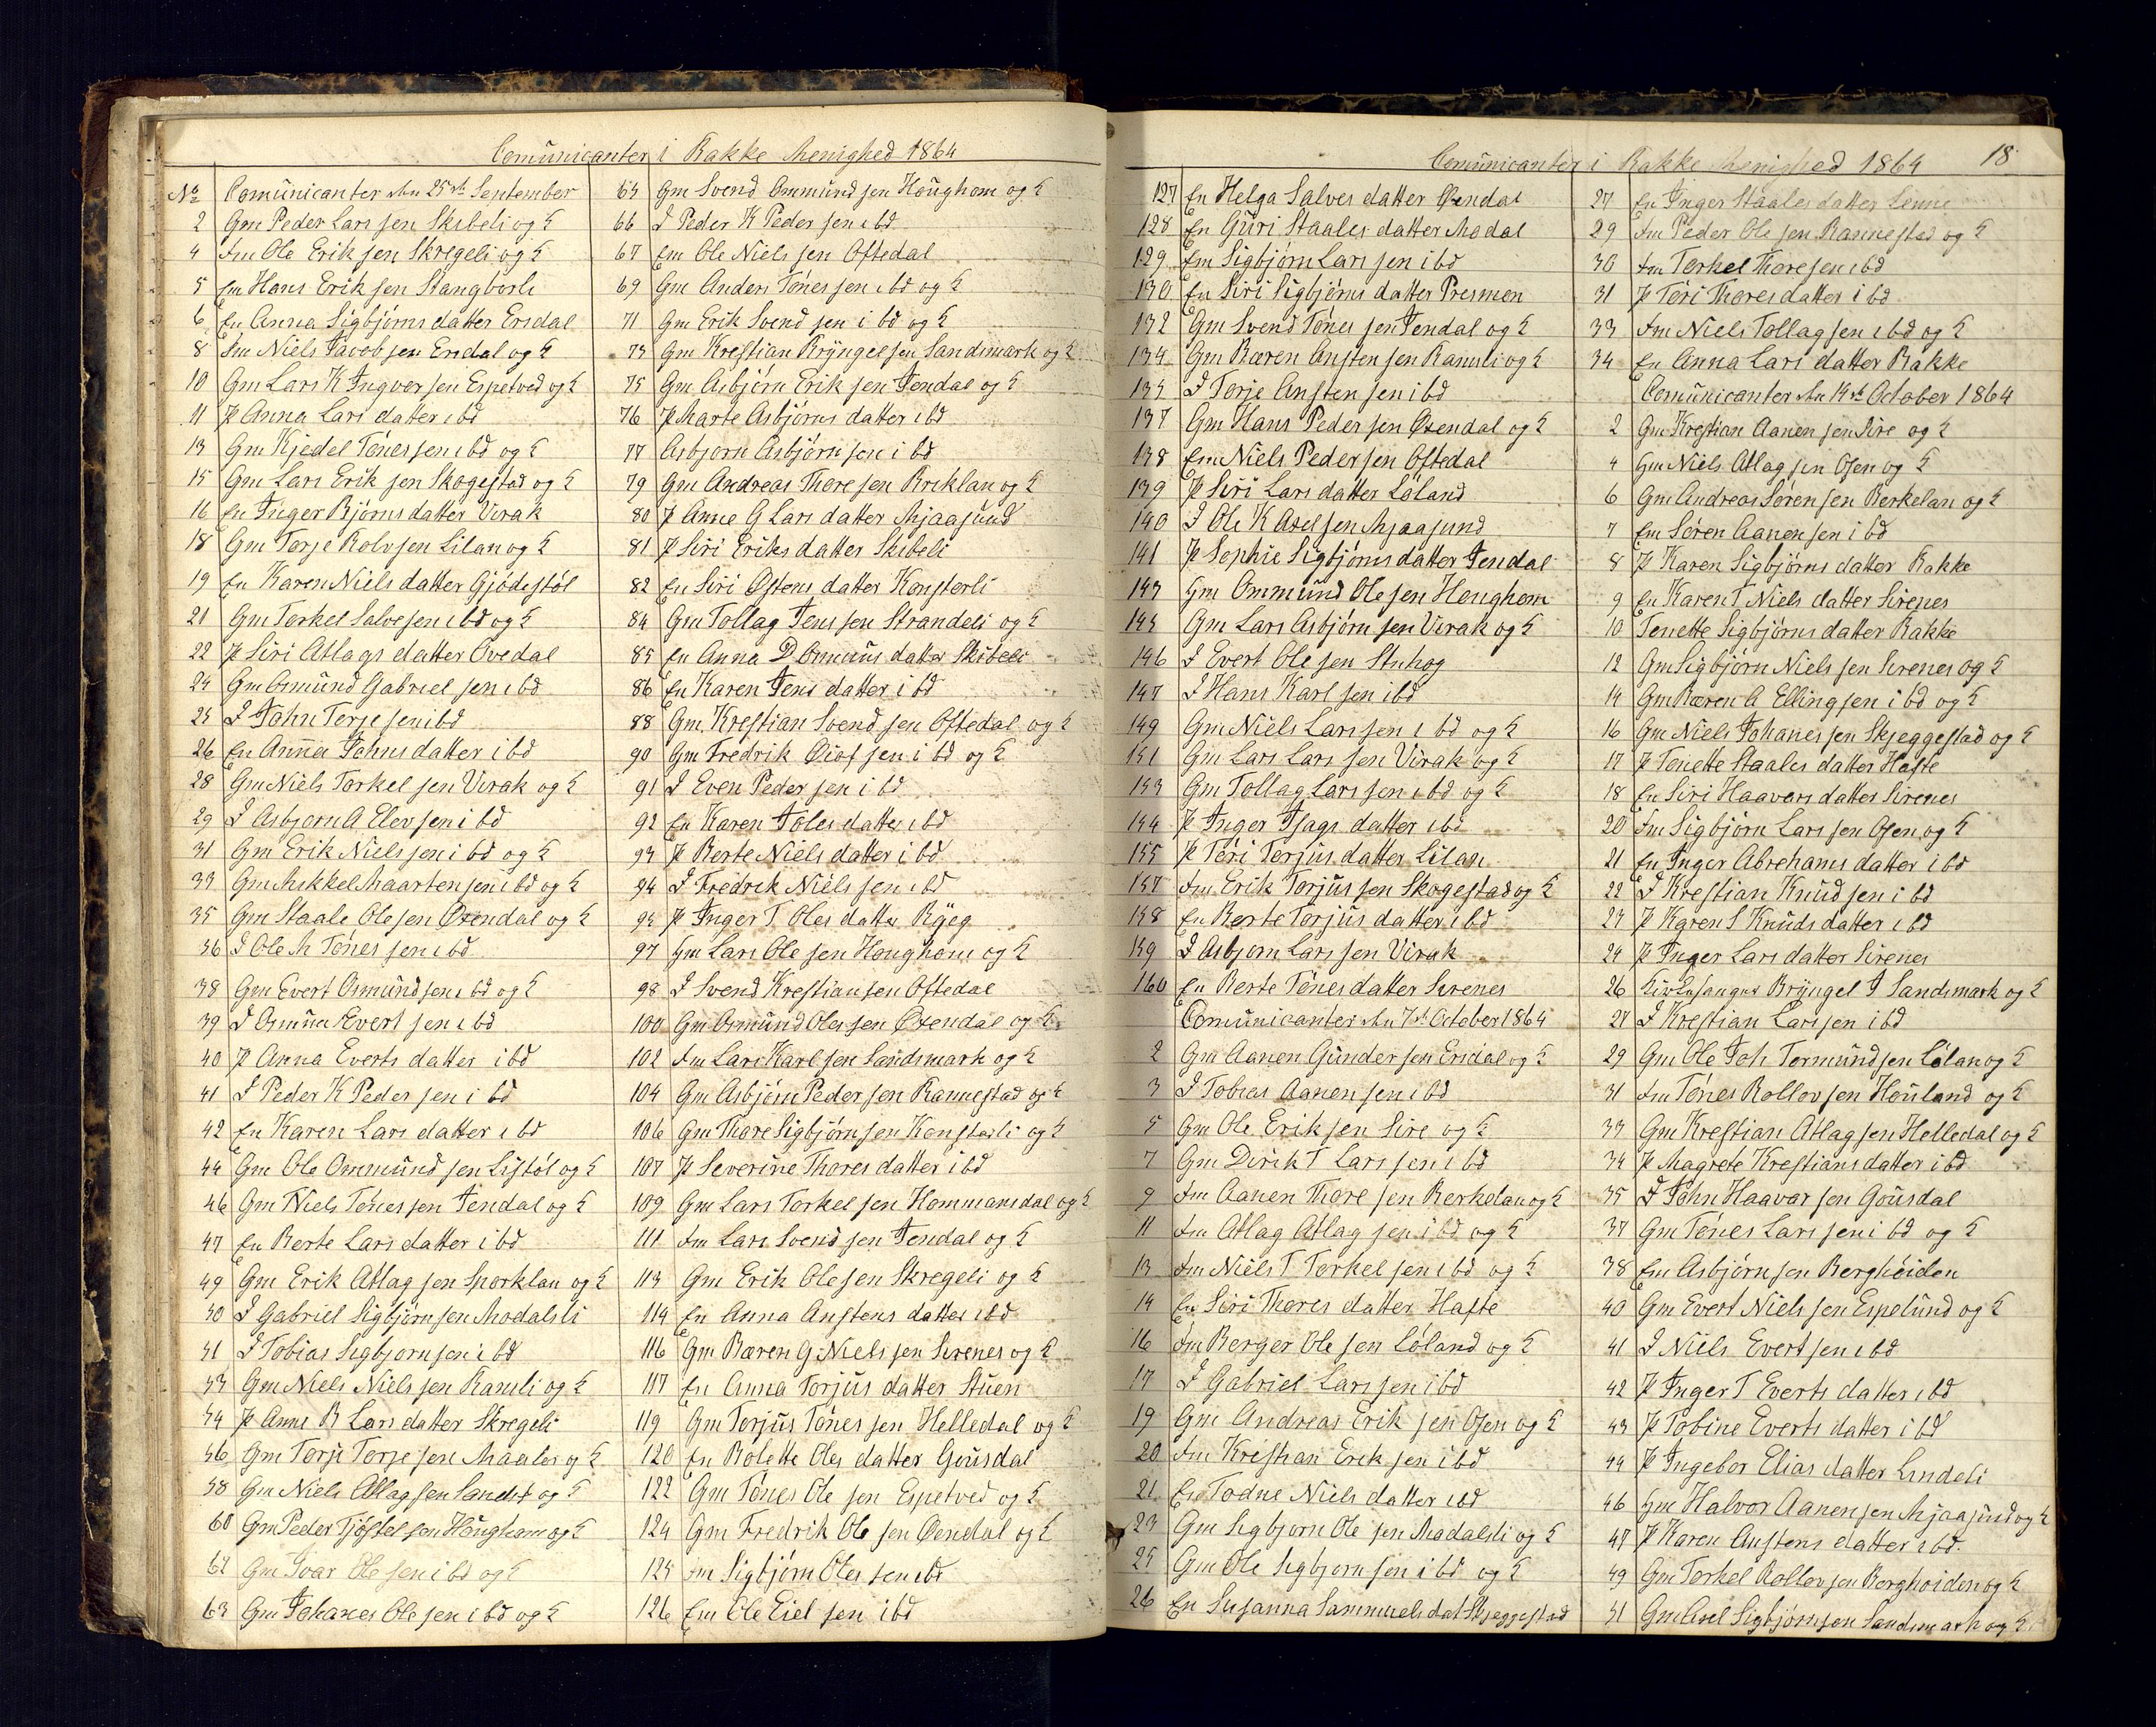 Comunicanter i Bakke Menighed 1864
No Comunicanter den 25de September
2 Gm Peder Lars sen Skibeli og H
4 Fm Ole Erik sen Skregeli og H
5 Em Hans Erik sen Stangborli
6 En Anna Sigbjørns datter Ersdal
8 Fm Niels Jacob sen Ersdal og H
10 Gm Lars K Ingver sen Espetved og H
11 P Anna Lars datter ibd
13 Gm Kjedel Tønes sen ibd og H
15 Gm Lars Erik sen Skogestad og H
16 En Inger Bjørns datter Virak
18 Gm Terje Rolv sen Lilan og H
19 En Karen Niels datter Gjødestøl
21 Gm Torkel Salve sen ibd og H
22 P Siri Atlags datter Ovedal
24 Gm Osmund Gabriel sen ibd
25 I John Terje sen ibd
26 En Anna Johns datter ibd
28 Gm Niels Torkel sen Virak og H
29 I Asbjorn A Elev sen ibd
31 Gm Erik Niels sen ibd og H
33 Gm Mikkel Maarten sen ibd og H
35 Gm Staale Ole sen Øxendal og H
36 I Ole M Tønes sen ibd
38 Gm Evert Osmund sen ibd og H
39 I Osmun Evert sen ibd
40 P Anna Everts datter ibd
41 I Peder K Peder sen ibd
42 En Karen Lars datter ibd
44 Gm Ole Ommund sen Listøl og H
46 Gm Niels Tønes sen Jendal og H
47 En Berte Lars datter ibd
49 Gm Erik Atlag sen Sporklan og H
50 I Gabriel Sigbjørn sen Modalsli
51 I Tobias Sigbjorn sen ibd
53 Gm Niels Niels sen Ramsli og H
54 P Anne B Lars datter Skregeli
56 Gm Terje Terje sen Maales og H
58 Gm Niels Atlag sen Sandst og H
60 Gm Peder Tjøstel sen Haughom og H
62 Gm Ivar Ole sen ibd og H
63 Gm Johanes Ole sen ibd og H
65 Gm Svend Ommund sen Houghom og H
66 I Peder K Peder sen ibd
67 Em Ole Niels sen Oftedal
69 Gm Anders Tønes sen ibd og H
71 Gm Erik Svend sen ibd og H
73 Gm Krestian Bryngel sen Sandsmark og H
75 Gm Asbjørn Erik sen Jendal og H
76 P Marte Asbjørns datter ibd
77 Asbjorn Asbjørn sen ibd
79 Gm Andreas Thore sen Briklan og H
80 P Anne G Lars datter Mjaasund
81 P Siri Eriks datter Skibeli
82 En Siri Østens datter Konsterli
84 Gm Tollag Jens sen Strandeli og H
85 En Anna D Osmuns datter Skibeli
86 En Karen Jens datter ibd
88 Gm Krestian Svend sen Oftedal og H
90 Gm Fredrik Eiof sen ibd og H
91 I Even Peder sen ibd
92 En Karen Joles datter ibd
93 P Berte Niels datter ibd
94 I Fredrik Niels sen ibd
95 P Inger T Oles datter Ryeg
97 Gm Lars Ole sen Houghom og H
98 I Svend Krestian sen Oftedal
100 Gm Osmund Oles sen Øxendal og H
102 Fm Lars Karl sen Sandsmark og H
104 Gm Asbjørn Peder sen Rannestad og H
106 Gm Thore Sigbjørn sen Konsterli og H
107 P Severine Thores datter ibd
109 Gm Lars Torkel sen Hommansdal og H
111 Fm Lars Svend sen Jendal og H
113 Gm Erik Ole sen Skregeli og H
114 En Anna Anstens datter ibd
116 Gm Bæren G Niels sen Sirenes og H
117 En Anna Torjus datter Stuen
119 Gm Torjus Tønes sen Helledal og H
120 En Bolette Oles datter Gousdal
122 Gm Tønes Ole sen Espetved og H
124 Gm Fredrik Ole sen Øxendal og H
125 Fm Sigbjørn Oles sen ibd
126 Em Ole Eiel sen ibd
Comunicanter i Bakke Menighed 1864 18
127 En Helga Salves datter Øxendal
128 En Guri Staales datter Modal
129 Em Sigbjørn Lars sen ibd
130 En Siri Sigbjørns datter Presmen
132 Gm Svend Tønes sen Jendal og H
134 Gm Bæren Ansten sen Ramsli og H
135 I Terje Ansten sen ibd
137 Gm Hans Peder sen Øxendal og H
138 Em Niels Peder sen Oftedal
139 P Siri Lars datter Løland
140 I Ole K Axel sen Mjaasund
141 P Sophie Sigbjørns datter Jendal
143 Gm Ommund Ole sen Houghom
145 Gm Lars Asbjørn sen Virak og H
146 I Evert Ole sen Stuhog
147 I Hans Karl sen ibd
149 Gm Niels Lars sen ibd og H
151 Gm Lars Lars sen Virak og H
153 Gm Tollag Lars sen ibd og H
154 P Inger Isags datter ibd
155 P Téri Terjus datter Lilan
157 Fm Erik Torjus sen Skogestad og H
158 En Berte Torjus datter ibd
159 I Asbjorn Lars sen Virak
160 En Berte Tønes datter Sirenes
Comunicanter den 7de October 1864
2 Gm Aanen Gunder sen Ersdal og H
3 I Tobias Aanen sen ibd
5 Gm Ole Erik sen Sire og H
7 Gm Dirik T Lars sen ibd
9 Fm Aanen Thore sen Berkelan og H
11 Fm Atlag Atlag sen ibd og H
13 Fm Niels T Torkel sen ibd og H
14 En Siri Thores datter Hafte
16 Fm Berger Ole sen Løland og H
17 I Gabriel Lars sen ibd
19 Gm Andreas Erik sen Osen og H
20 Fm Krestian Erik sen ibd
21 En Todne Niels datter ibd
23 Gm Sigbjorn Ole sen Modalsli og H
25 Gm Ole Sigbjorn sen ibd og H
26 En Susanna Sammuels dat Skjeggestad
27 En Inger Staales datter Linne
29 Fm Peder Ole sen Rannestad og H
30 Fm Terkel Thore sen ibd
31 P Téri Thores datter ibd
33 Fm Niels Tollag sen ibd og H
34 En Anna Lars datter Bakke
Comunicanter den 14de October 1864
2 Gm Krestian Aanen sen Sire og H
4 Gm Niels Atlag sen Osen og H
6 Gm Andreas Søren sen Berkelan og H
7 Em Søren Aanen sen ibd
8 P Karen Sigbjørns datter Bakke
9 En Karen T Niels datter Sirenes
10 Tenette Sigbjørns datter Bakke
12 Gm Sigbjørn Niels sen Sirenes og H
14 Gm Bæren A Elling sen ibd og H
16 Gm Niels Johanes sen Skjeggestad og H
17 P Tenette Staales datter Hafte
18 En Siri Haavers datter Sirenes
20 Fm Sigbjørn Lars sen Osen og H
21 En Inger Abrehams datter ibd
22 I Krestian Knud sen ibd
23 P Karen S Knuds datter ibd
24 P Inger Lars datter Sirenes
26 Bryngel I Sandsmark og H
27 I Krestian Lars sen ibd
29 Gm Ole Joh Tormund sen Lølan og H
31 Fm Tønes Rollov sen Houland og H
33 Gm Krestian Atlag sen Helledal og H
34 P Magrete Krestians datter ibd
35 I John Haavar sen Gousdal
37 Gm Tønes Lars sen ibd og H
38 Em Asbjørn sen Berghøiden
40 Gm Evert Niels sen Espelund og H
41 I Niels Evert sen ibd
42 P Inger T Everts datter ibd
43 P Tobine Everts datter ibd
44 P Ingebor Elias datter Lindeli
46 Gm Halvor Aanen sen Mjaasund og H
47 P Karen Anstens datter ibd
49 Gm Torkel Rollov sen Berghoiden og H
51 Gm Axel Sigbjørn sen Sandsmark og H